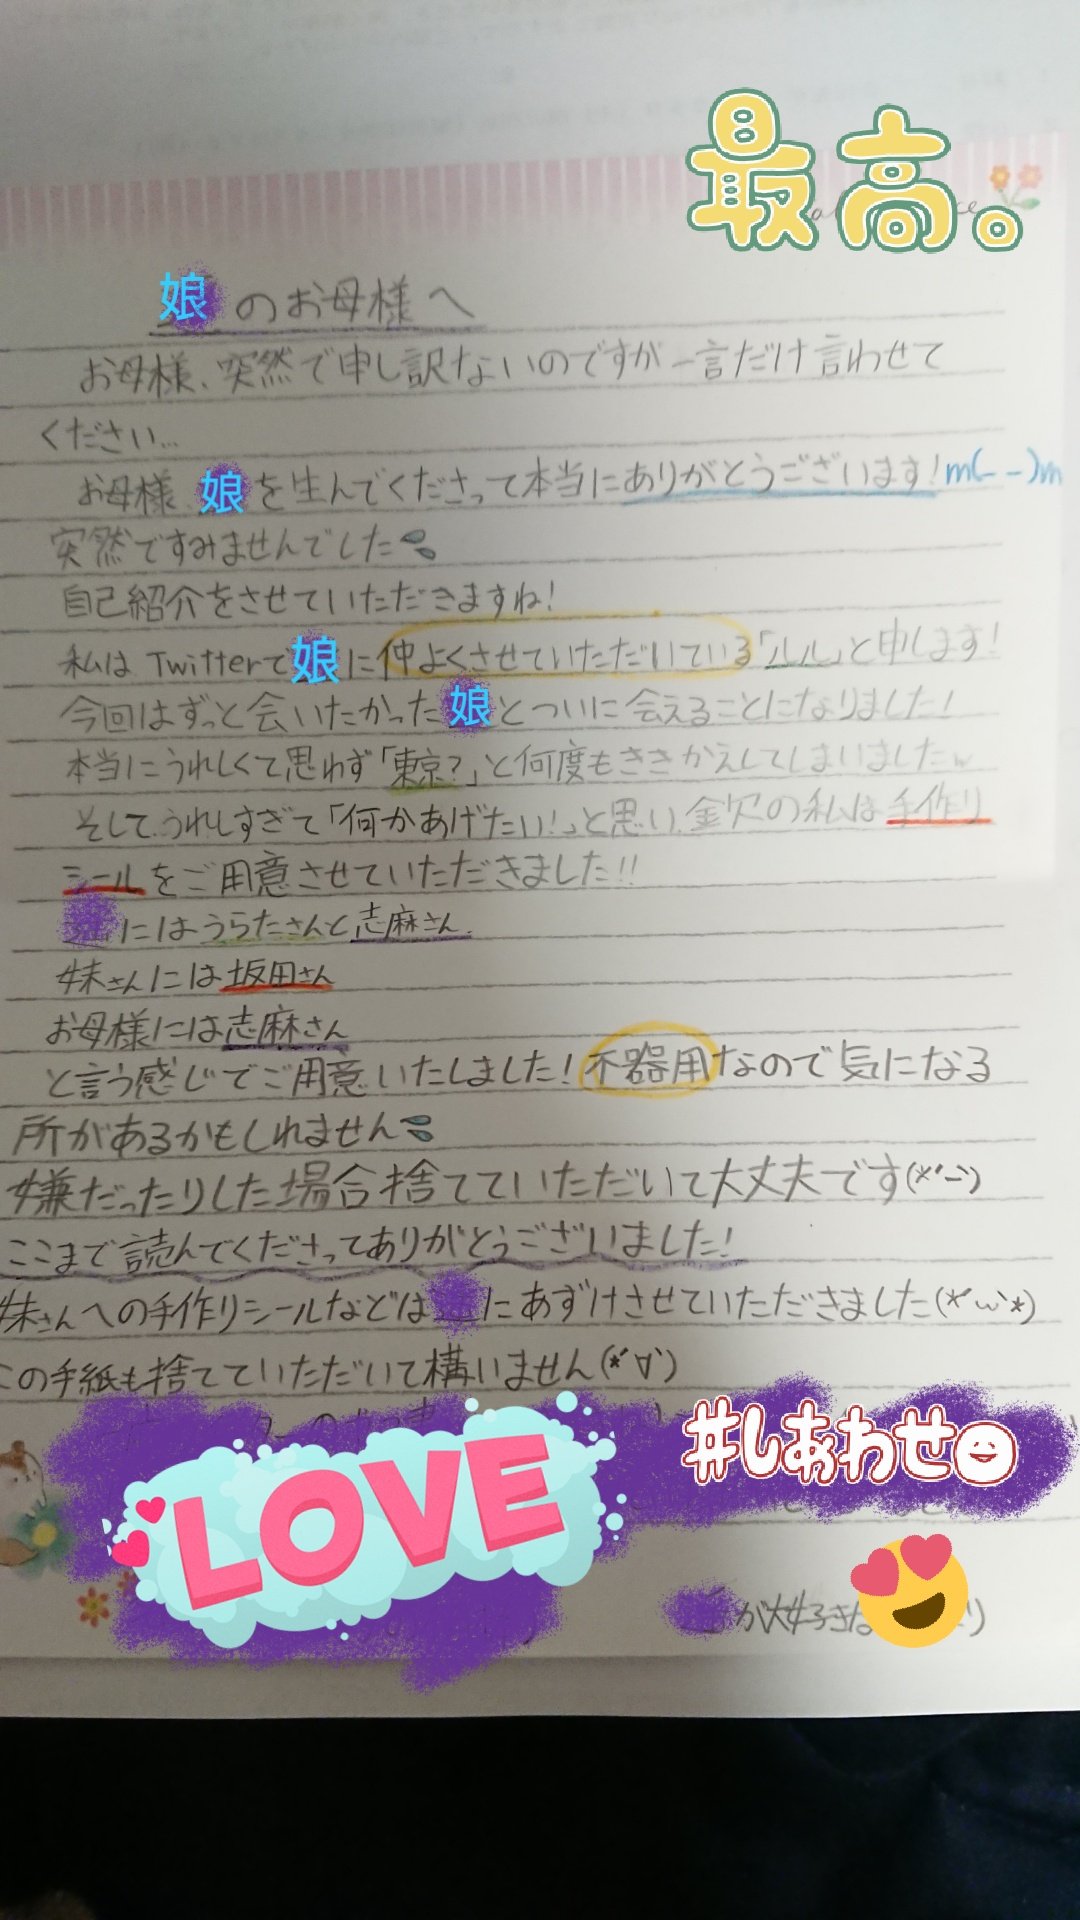 最高。
娘のお母様へ
お母様、突然で申し訳ないのですが一言だけ言わせて
ください…
お母様 娘を生んでくださって本当にありがとうございます!m(--)m
突然ですみませんでした
自己紹介をさせていただきますね!
私はTwitterで娘に仲よくさせていただいている「ルル」と申します!
今回はずっと会いたかった娘とついに会えることになりました!
本当にうれしくて思わず「東京?」と何度もききかえしてしまいましたw
そして、うれしすぎて「何かあげたい!」と思い、金欠の私は手作り
シールをご用意させていただきました!!
にはうらたさんと志麻さん
妹さんには坂田さん
お母様には志麻さん
と言う感じでご用意いたしました!不器用なので気になる
所があるかもしれません
嫌だったりした場合捨てていただいて大丈夫です(*'-')
ここまで読んでくださってありがとうございました!
妹さんへの手作りシールなどは にあずけさせていただきました(*'ω'*)
この手紙も捨てていただいて構いません(*'∀')
#しあわせ
LOVE
が大好きな